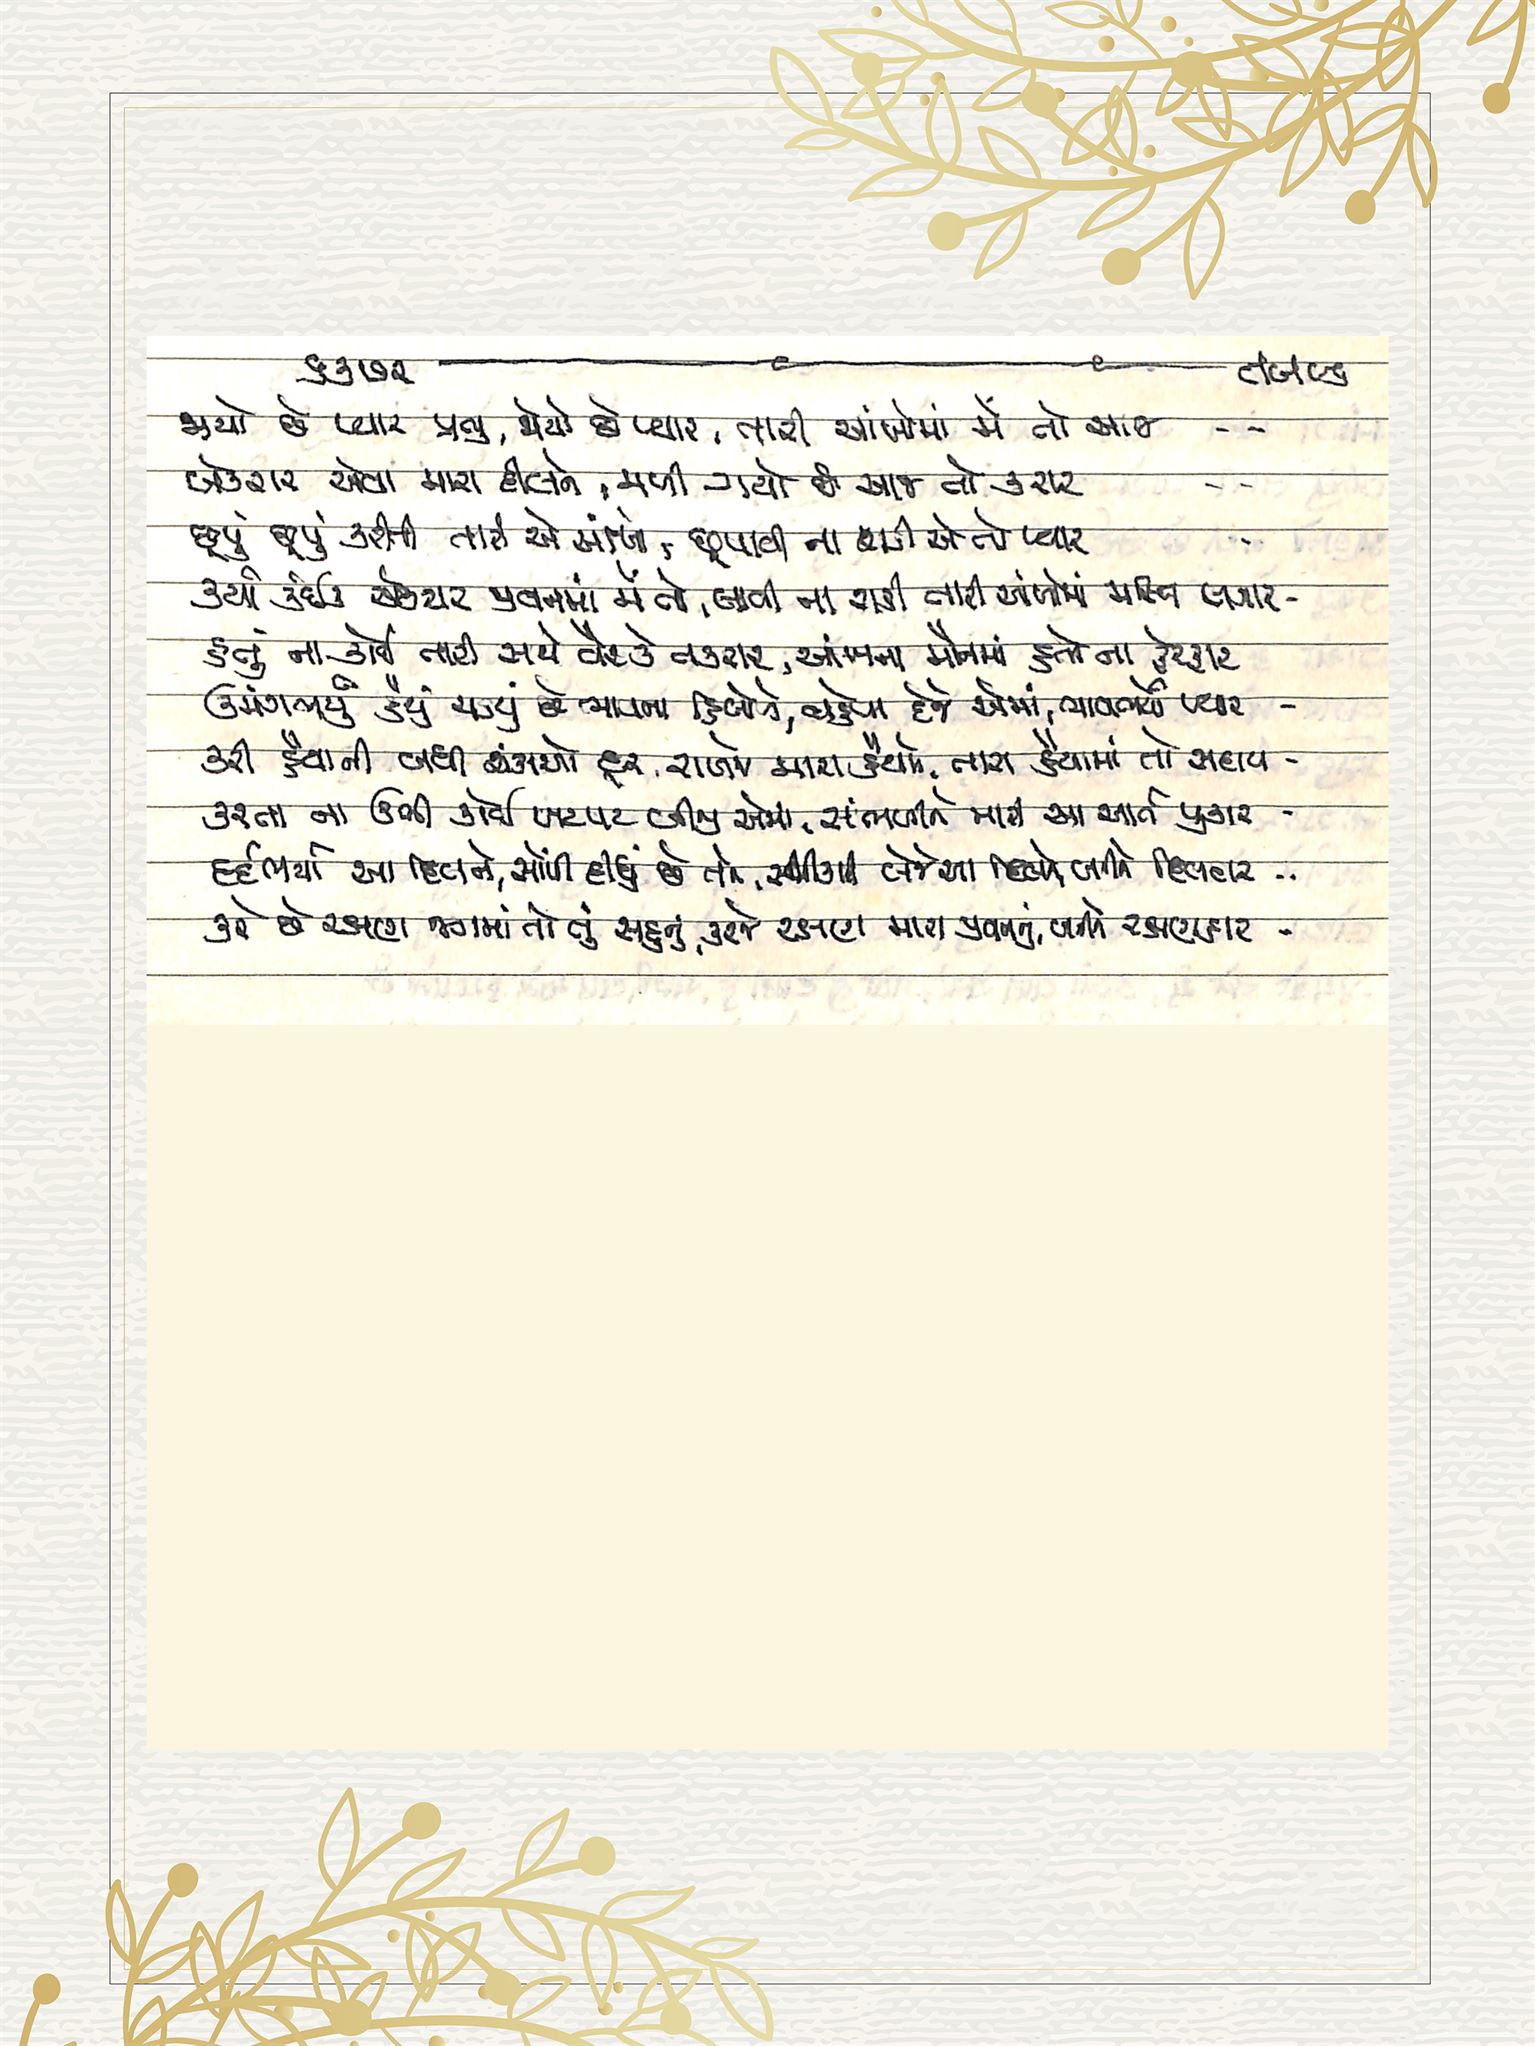 જોયો છે પ્યાર પ્રભુ, જોયો છે પ્યાર, તારી આંખોમાં મેં તો આજ - -
બેકરાર એવા મારા દીલને, મળી ગયો છે આજ તો કરાર - -
છૂપું છૂપું કરીતી તારી એ આંખો, છૂપાવી ના શકી એ તો પ્યાર -
કર્યા કંઈક એકરાર જીવનમાં મેં તો, લાવી ના શકી તારી આંખોમાં લગાર -
હતું ના કોઈ તારી સાથે વૈર કે તકરાર, આંખના મૌનમાં હતો ના ફેરફાર
ઉમંગભર્યું હૈયું ચડયું છે ભાવના હિલોળે, વહેવા દેજે એમાં, ભાવભર્યો પ્યાર -
કરી હૈયાની બધી શંકાઓ દૂર, રાખજે મારા હૈયાને, તારા હૈયામાં તો સદાય -
કરતા ના ઉભી કોઈ ખટપટ બીજી એમાં, સાંભળીને મારી આ આર્ત પુકાર -
દર્દભર્યા આ દિલને, સોંપી દીધું છે તને, સ્વીકારી લેજે આ દિલને, બનીને દિલદાર ..
કરે છે રક્ષણ જગમાં તો તું સહુનું, કરજે રક્ષણ મારા જીવનનું, બનીને રક્ષણહાર -